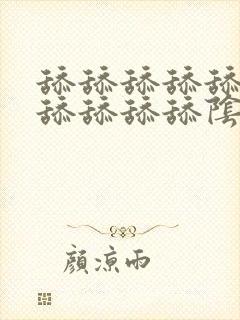 舔舔舔舔舔
舔舔舔舔陰
顏涼雨